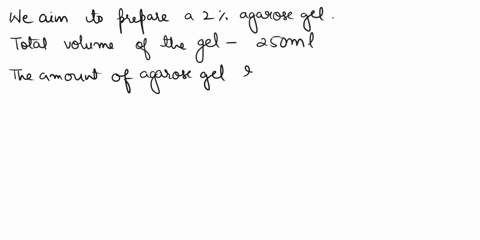 We aim to prepare a 2% agarose gel.
Total volume of the gel - 250ml
The amount of agarose gel